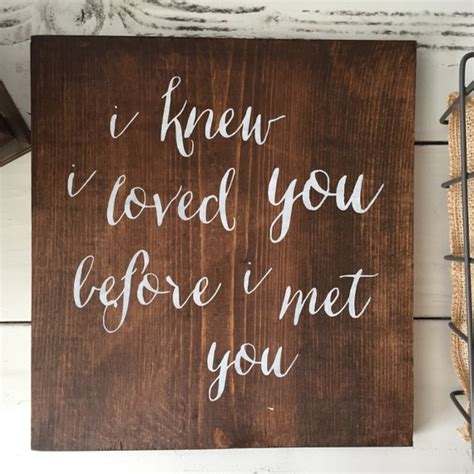 i knew
i loved you
before i met
you